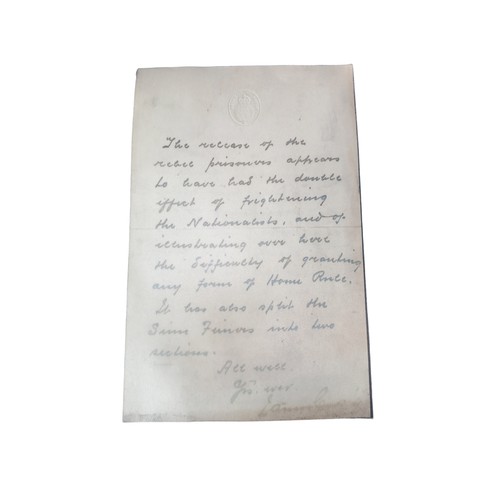 The release of the
rebel prisoners appears
to have had the double
effect of frightening
the Nationalists, and of
illustrating over here
the difficulty of granting
any form of Home Rule.
It has also split the
Sinn Feiners into two
sections.
All well.
Yrs. ever